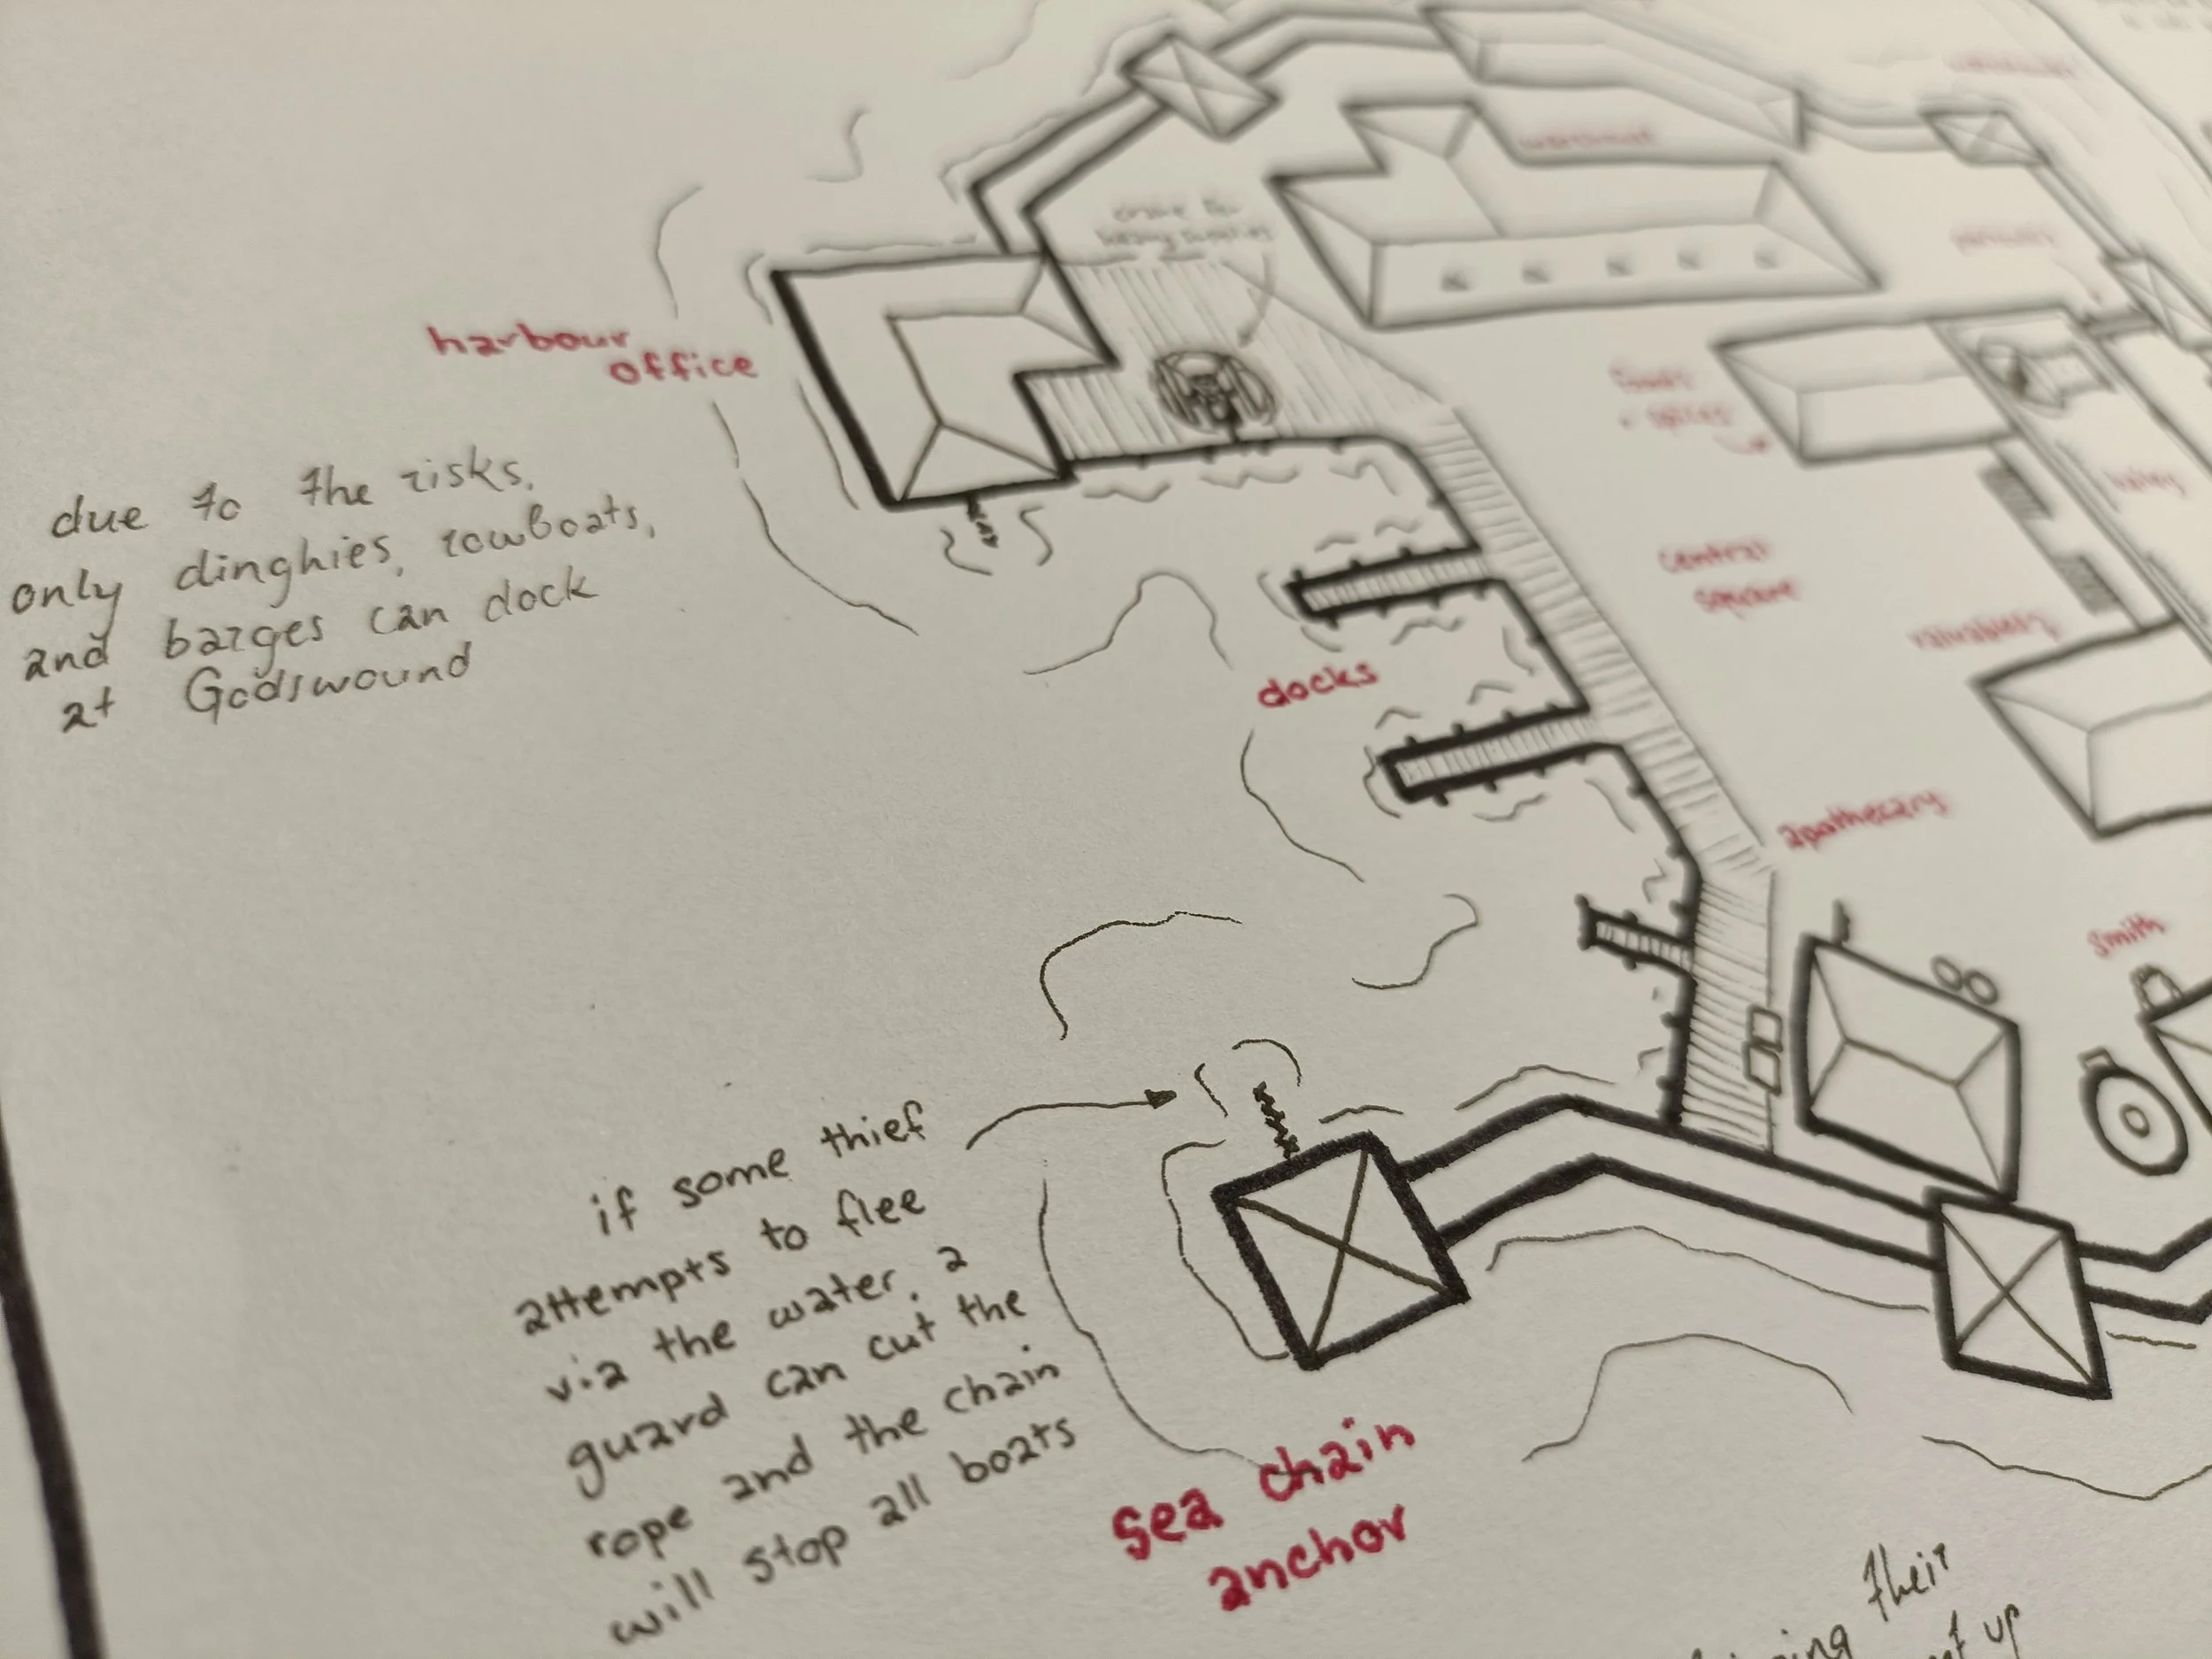 crane for
heavy supplies
harbour
office
due to the risks,
only dinghies, rowboats,
and barges can dock
at Godswound
central
square
docks
apothecary
smith
if some thief
attempts to flee
via the water, a
guard can cut the
rope and the chain
will stop all boats
sea chain
anchor
their
up